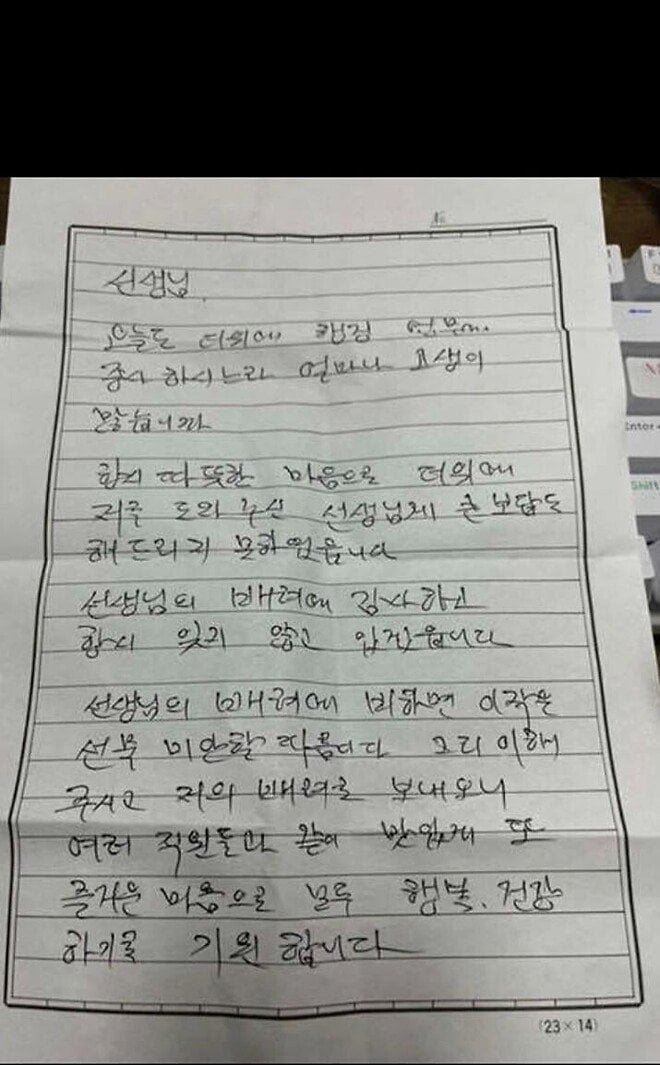 No
선생님
오늘도 더위에 행정 업무에
종사 하시느라 얼마나 고생이
많습니까
항시 따뜻한 마음으로 더위에
저를 도와 주신 선생님께 큰 보답도
해 드리지 못하였읍니다
선생님의 배려에 감사하고
항시 잊지 않고 있겠읍니다
선생님의 배려에 비하면 이 작은
선물 미안할 따름이다 그리 이해
주시고 저의 배려로 보내오니
여러 직원들과 같이 반갑게 또
즐거운 마음으로 모두 행복. 건강
하기를 기원 합니다
(23×14)
Enter
Shift